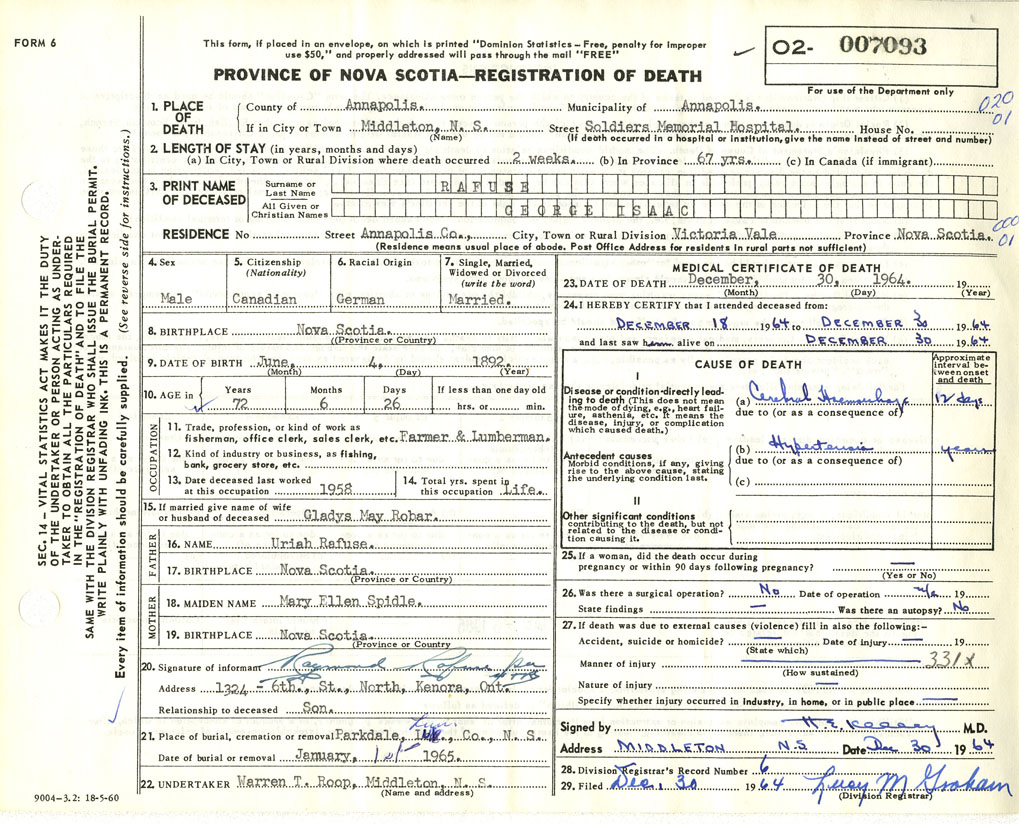 FORM 6
This form, if placed in an envelope, on which is printed "Dominion Statistics – Free, penalty for improper
use $50," and properly addressed will pass through the mail "FREE"
02- 007093
For use of the Department only
PROVINCE OF NOVA SCOTIA—REGISTRATION OF DEATH
020
01
1. PLACE OF DEATH
County of Annapolis. Municipality of Annapolis.
If in City or Town Middleton, N. S. Street Soldiers Memorial Hospital. House No.
(Name) (If death occurred in a hospital or institution, give the name instead of street and number)
2. LENGTH OF STAY (in years, months and days)
(a) In City, Town or Rural Division where death occurred 2 weeks. (b) In Province 67 yrs. (c) In Canada (if immigrant)
3. PRINT NAME OF DECEASED
Surname or Last Name RAFUSE
All Given or Christian Names GEORGE ISAAC
000
01
RESIDENCE No Street Annapolis Co., City, Town or Rural Division Victoria Vale Province Nova Scotia.
(Residence means usual place of abode. Post Office Address for residents in rural parts not sufficient)
4. Sex
Male
5. Citizenship
(Nationality)
Canadian
6. Racial Origin
German
7. Single, Married,
Widowed or Divorced
(write the word)
Married.
8. BIRTHPLACE Nova Scotia.
((Province or Country)
9. DATE OF BIRTH June, 4, 1892.
(Month) (Day) (Year)
10. AGE in
Years Months Days If less than one day old
72 6 26 hrs. or min.
OCCUPATION
11. Trade, profession, or kind of work as
fisherman, office clerk, sales clerk, etc. Farmer & Lumberman.
12. Kind of industry or business, as fishing,
bank, grocery store, etc.
13. Date deceased last worked
at this occupation 1958
14. Total yrs. spent in
this occupation Life.
15. If married give name of wife
or husband of deceased Gladys May Robar.
FATHER
16. NAME Uriah Rafuse.
17. BIRTHPLACE Nova Scotia.
(Province or Country)
MOTHER
18. MAIDEN NAME Mary Ellen Spidle.
19. BIRTHPLACE Nova Scotia.
(Province or Country)
20. Signature of informant Raymond Rafuse per
Address 1324 – 6th., St., North, Kenora, Ont.
Relationship to deceased Son.
21. Place of burial, cremation or removal Parkdale, Lun. Co., N. S.
Date of burial or removal January, 1st 1965.
22. UNDERTAKER Warren T. Roop, Middleton, N. S.
(Name and address)
9004-3.2: 18-5-60
MEDICAL CERTIFICATE OF DEATH
23. DATE OF DEATH December, 30, 1964. 19
(Month) (Day) (Year)
24. I HEREBY CERTIFY that I attended deceased from:
DECEMBER 18 1964 to DECEMBER 30 1964
and last saw him alive on DECEMBER 30 1964
CAUSE OF DEATH
Approximate
interval be-
tween onset
and death
I
Disease or condition directly lead-
ing to death (This does not mean
the mode of dying, e.g., heart fail-
ure, asthenia, etc. It means the
disease, injury, or complication
which caused death.)
(a) Cerebral Haemorrhage 12 days
due to (or as a consequence of)
Antecedent causes
Morbid conditions, if any, giving
rise to the above cause, stating
the underlying condition last.
(b) Hypertension years
due to (or as a consequence of)
(c)
II
Other significant conditions
contributing to the death, but not
related to the disease or condi-
tion causing it.
25. If a woman, did the death occur during
pregnancy or within 90 days following pregnancy? —
(Yes or No)
26. Was there a surgical operation? No Date of operation n/a 19
State findings — Was there an autopsy? No
27. If death was due to external causes (violence) fill in also the following:-
Accident, suicide or homicide? — Date of injury — 19
(State which)
Manner of injury 331X
(How sustained)
Nature of injury —
Specify whether injury occurred in industry, in home, or in public place
Signed by M.D.
Address MIDDLETON N.S Date Dec 30 1964
28. Division Registrar's Record Number 6
29. Filed Dec. 30 1964 Lucy M Graham
(Division Registrar)
SEC. 14 – VITAL STATISTICS ACT MAKES IT THE DUTY
OF THE UNDERTAKER OR PERSON ACTING AS UNDER-
TAKER TO OBTAIN ALL THE PARTICULARS REQUIRED
IN THE "REGISTRATION OF DEATH" AND TO FILE THE
SAME WITH THE DIVISION REGISTRAR WHO SHALL ISSUE THE BURIAL PERMIT.
WRITE PLAINLY WITH UNFADING INK. THIS IS A PERMANENT RECORD.
Every item of information should be carefully supplied. (See reverse side for instructions.)